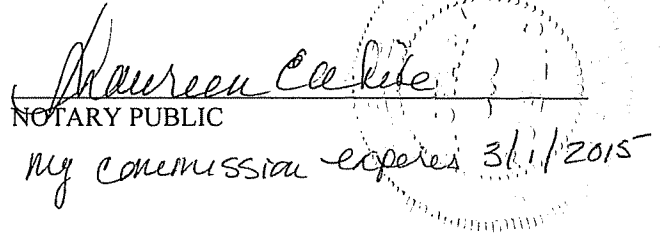 Maureen
NOTARY PUBLIC
my commission expires 3/1/2015